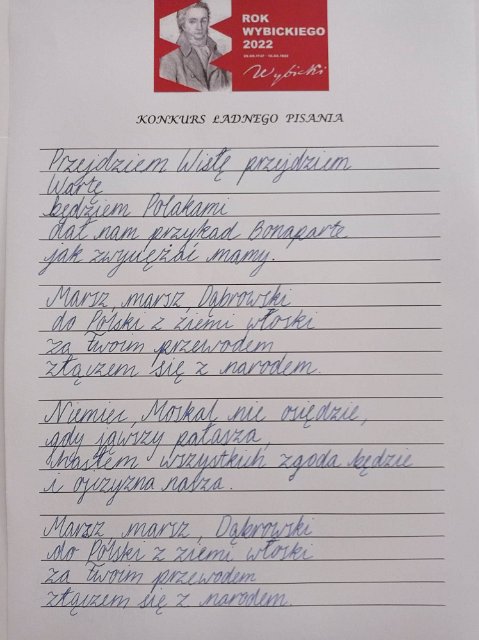 ROK
WYBICKIEGO
2022
Wybicki
KONKURS ŁADNEGO PISANIA
Przejdziem Wisłę przejdziem
Wartę
będziem Polakami
dał nam przykad Bonaparte
jak zwyciężać mamy.
Marsz, marsz, Dąbrowski
do Polski z ziemi włoski
za Twoim przewodem
złączem się z narodem.
Niemiec, Moskal nie osiędzie,
gdy jąwszy pałasza,
hasłem wszystkich zgoda będzie
i ojczyzna nasza.
Marsz, marsz, Dąbrowski
do Polski z ziemi włoski
za Twoim przewodem
złączem się z narodem.